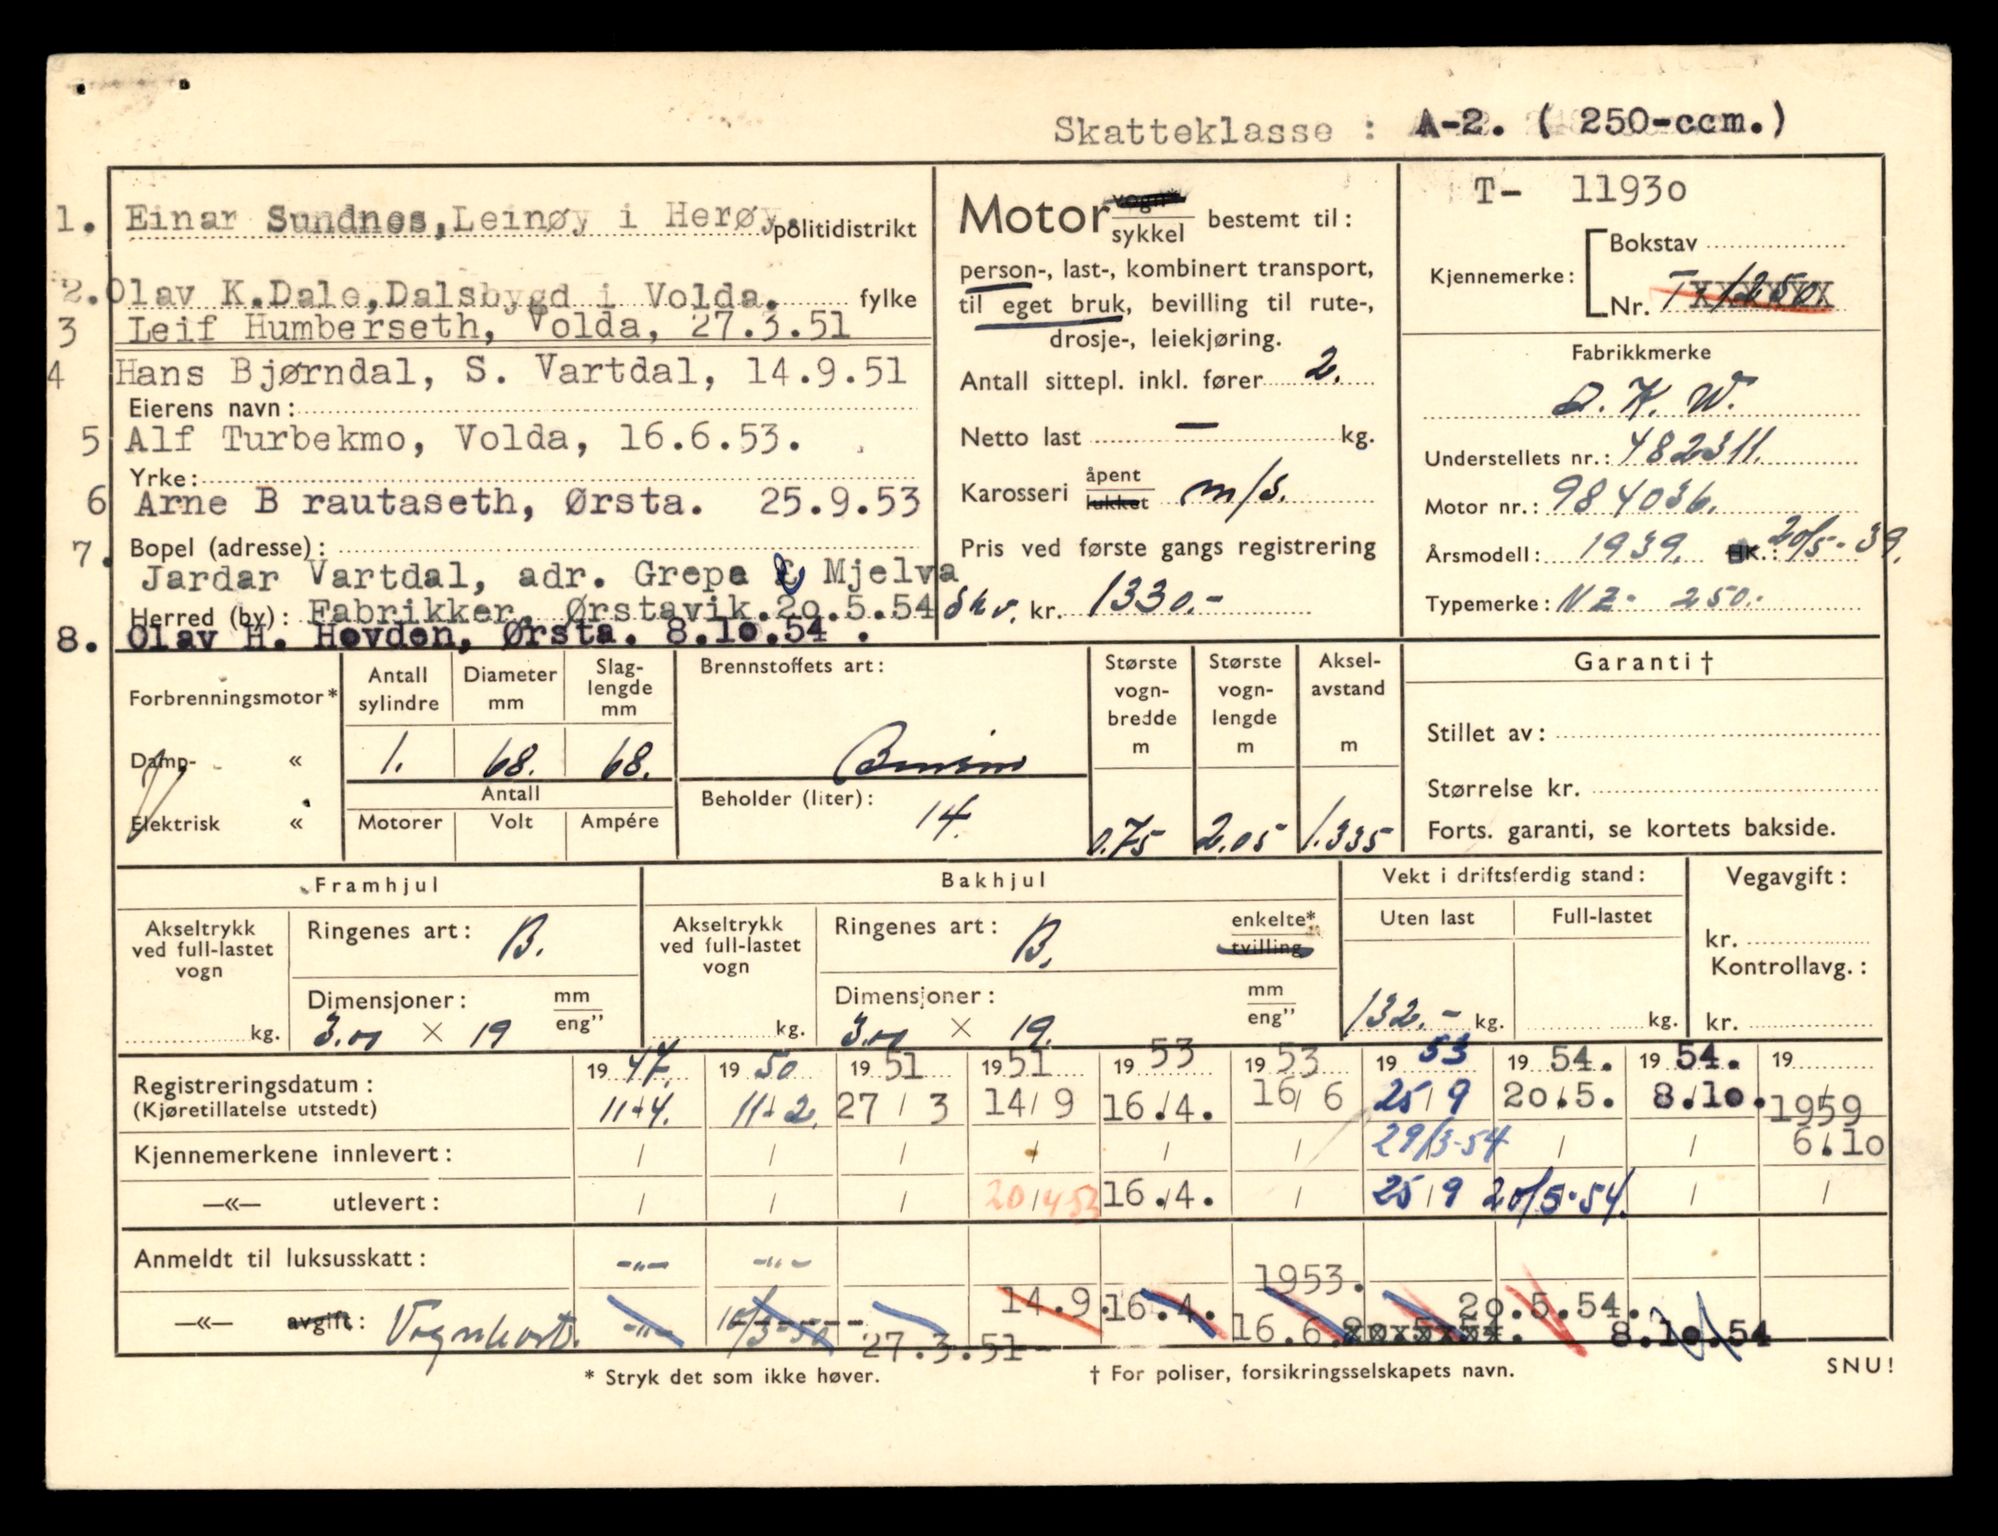 Skatteklasse : A-2. ( 250-ccm.)
1. Einar Sundnes, Leinøy i Herøy politidistrikt
2. Olav K.Dale, Dalsbygd i Volda. fylke
3 Leif Humberseth, Volda, 27.3.51
4 Hans Bjørndal, S. Vartdal, 14.9.51
Eierens navn:
5 Alf Turbekmo, Volda, 16.6.53.
Yrke:
6 Arne B rautaseth, Ørsta. 25.9.53
Bopel (adresse):
7. Jardar Vartdal, adr. Grepa & Mjelva
Herred (by): Fabrikker, Ørstavik.20.5.54
8. Olav H. Hovden, Ørsta. 8.10.54 .
Motor vogn* sykkel bestemt til:
person-, last-, kombinert transport,
til eget bruk, bevilling til rute-,
drosje-, leiekjøring.
Antall sittepl. inkl. fører 2.
Netto last — kg.
Karosseri åpent lukket m/s.
Pris ved første gangs registrering
Skv. kr. 1330.-
T- 11930
Kjennemerke: Bokstav
Nr. T-1250
Fabrikkmerke
D. K. W.
Understellets nr.: 482311.
Motor nr.: 984036.
Årsmodell: 1939. HK.: 20/5-39.
Typemerke: NZ- 250.-
Forbrenningsmotor*
Damp- «
Elektrisk «
Antall sylindre 1.
Diameter mm 68.
Slag-lengde mm 68.
Antall
Motorer Volt Ampére
Brennstoffets art:
Bensin
Beholder (liter): 14.
Største vogn-bredde m 0.75
Største vogn-lengde m 2.05
Aksel-avstand m 1.335
Garanti†
Stillet av:
Størrelse kr.
Forts. garanti, se kortets bakside.
Framhjul
Akseltrykk ved full-lastet vogn kg.
Ringenes art: B.
Dimensjoner: mm eng"
3.00 × 19
Bakhjul
Akseltrykk ved full-lastet vogn kg.
Ringenes art: B. enkelte* tvilling
Dimensjoner: mm eng"
3.00 × 19.
Vekt i driftsferdig stand:
Uten last Full-lastet
132.- kg. kg.
Vegavgift:
kr.
Kontrollavg.:
kr.
19 47. 19 50 19 51 19 51 19 53 19 53 19 53 19 54. 19 54. 19
Registreringsdatum:
(Kjøretillatelse utstedt) 11-4. 11-2. 27/ 3 14/ 9 16./4. 16/ 6 25/9 20.5. 8.10. 1959
Kjennemerkene innlevert: / / / / / / 29/3-54 / / 6.10
—«— utlevert: / / / 20/4 53 16./4. / 25/9 20/5-54. / /
Anmeldt til luksusskatt: -"- -"-
—«— avgift: Vognkort. -"- 10/3-50 27.3.51- 14.9. 16.4. 1953. 16.6. 20.5.54. 8.10.54
* Stryk det som ikke høver.
† For poliser, forsikringsselskapets navn.
SNU!